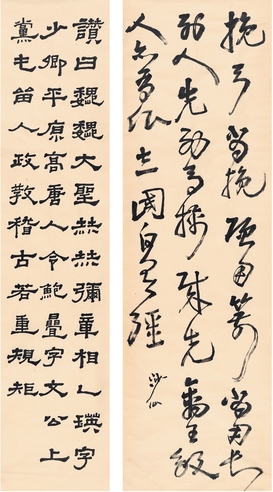 挽弓當挽強用箭當用長
射人先射馬擒賊先擒王殺
人亦有限立國自有疆
讚曰魏魏大聖赫赫彌章相乙瑛字
少卿平原高唐人令鮑疊字文公上
黨屯留人政教稽古若重規矩